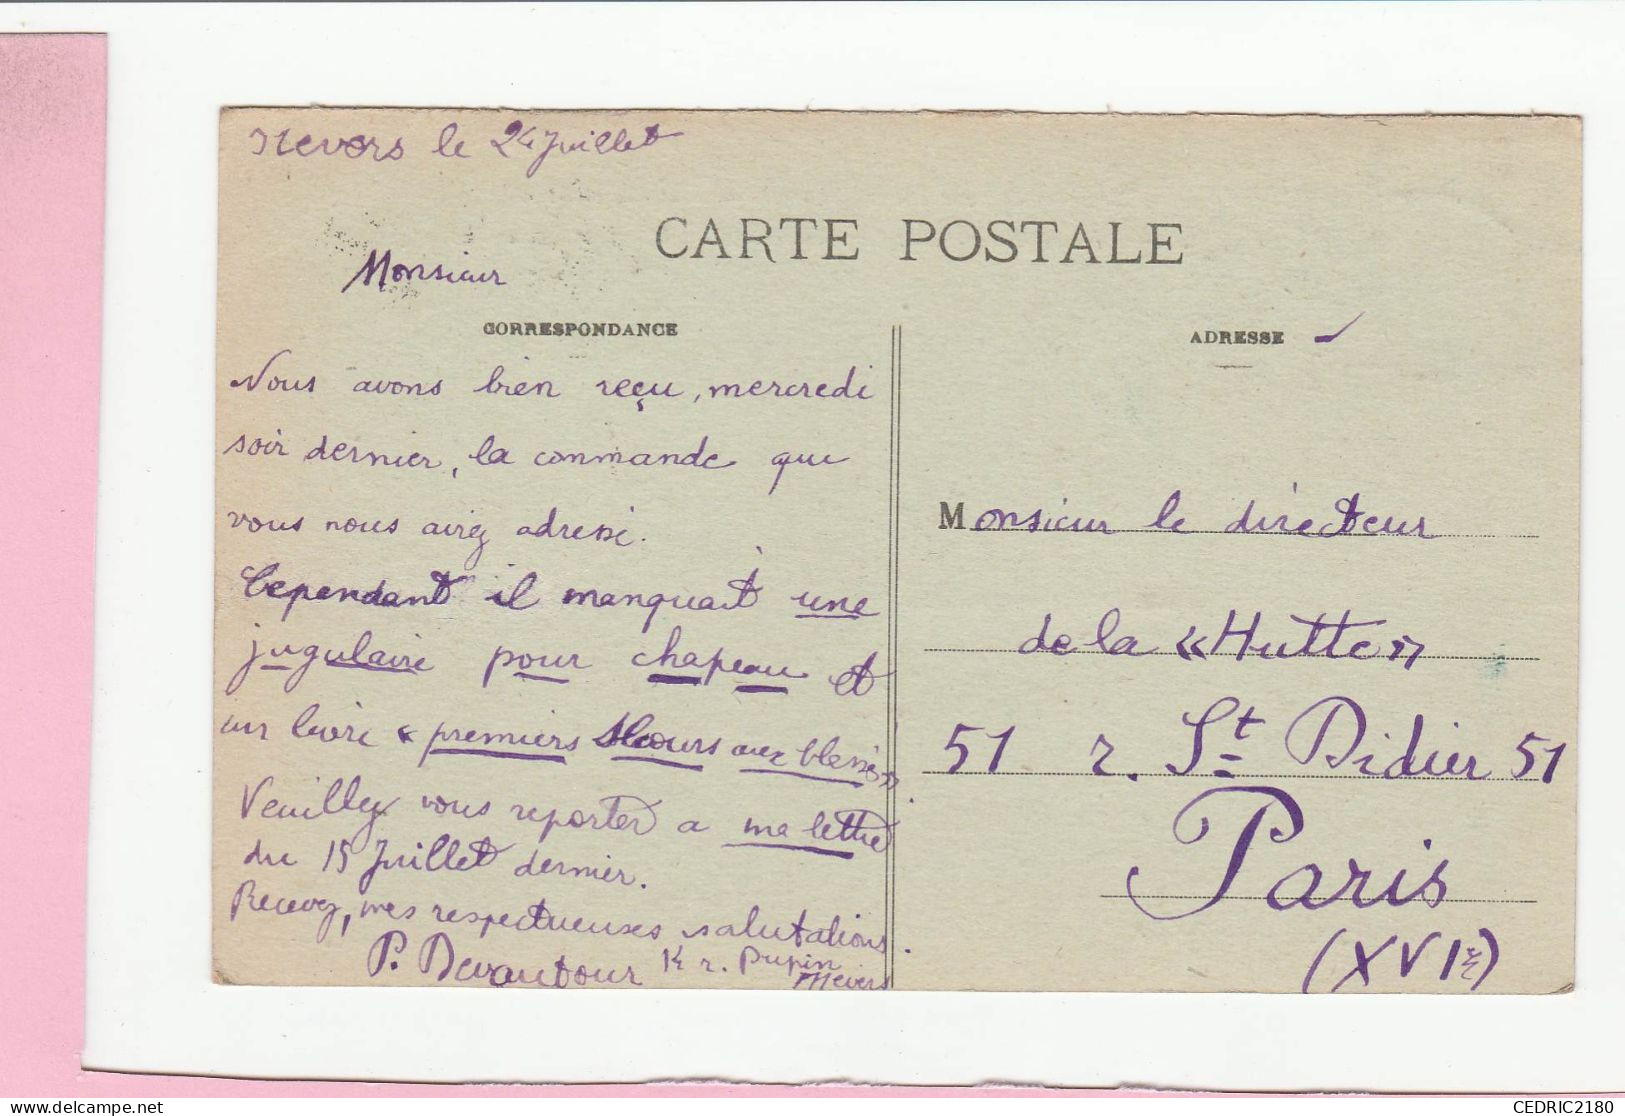 Nevers le 24 Juillet
CARTE POSTALE
Monsieur
CORRESPONDANCE
Nous avons bien reçu, mercredi
soir dernier, la commande que
vous nous avez adressé.
Cependant il manquait une
jugulaire pour chapeau et
un livre « premiers secours aux blessés».
Veuillez vous reporter a ma lettre
du 15 Juillet dernier.
Recevez, mes respectueuses salutations.
P. Devautour
r. Pupin
Nevers
ADRESSE
Monsieur le directeur
de la «Hutte»
51 r. St Didier 51
Paris
(XVIe)
CEDRIC2180